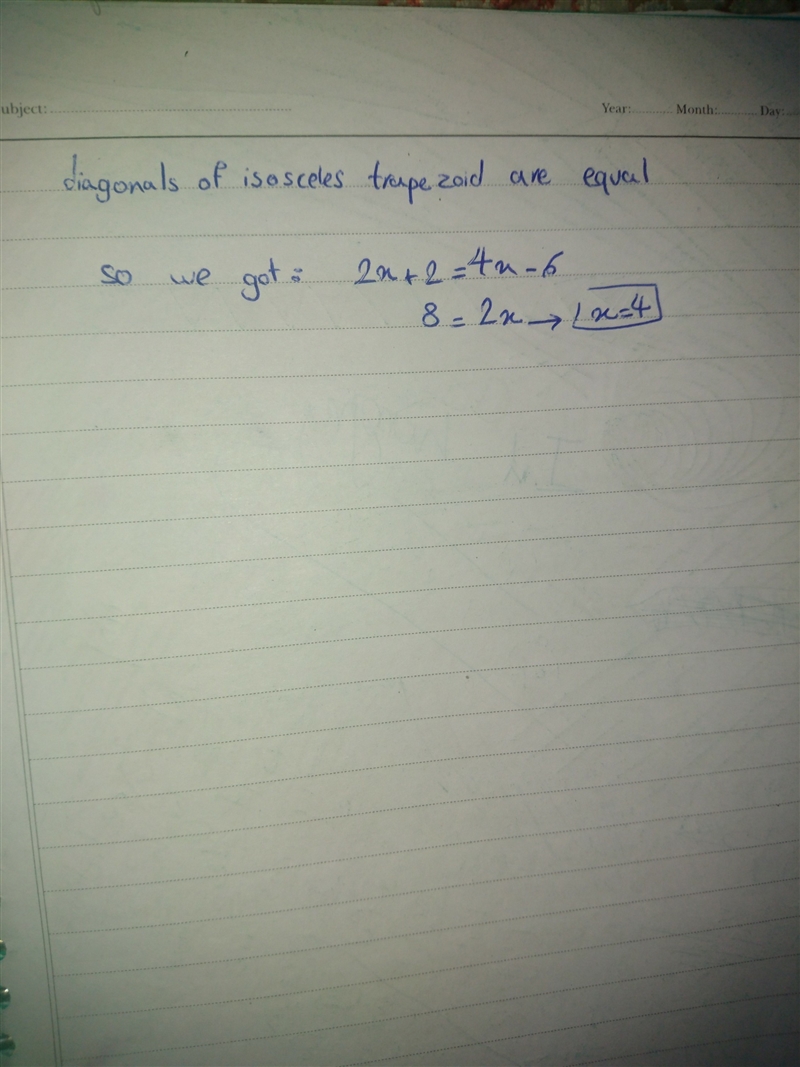 ubject:
Year: Month: Day:
diagonals of isosceles trapezoid are equal
so we got: 2x+2=4x-6
8=2x→ x=4